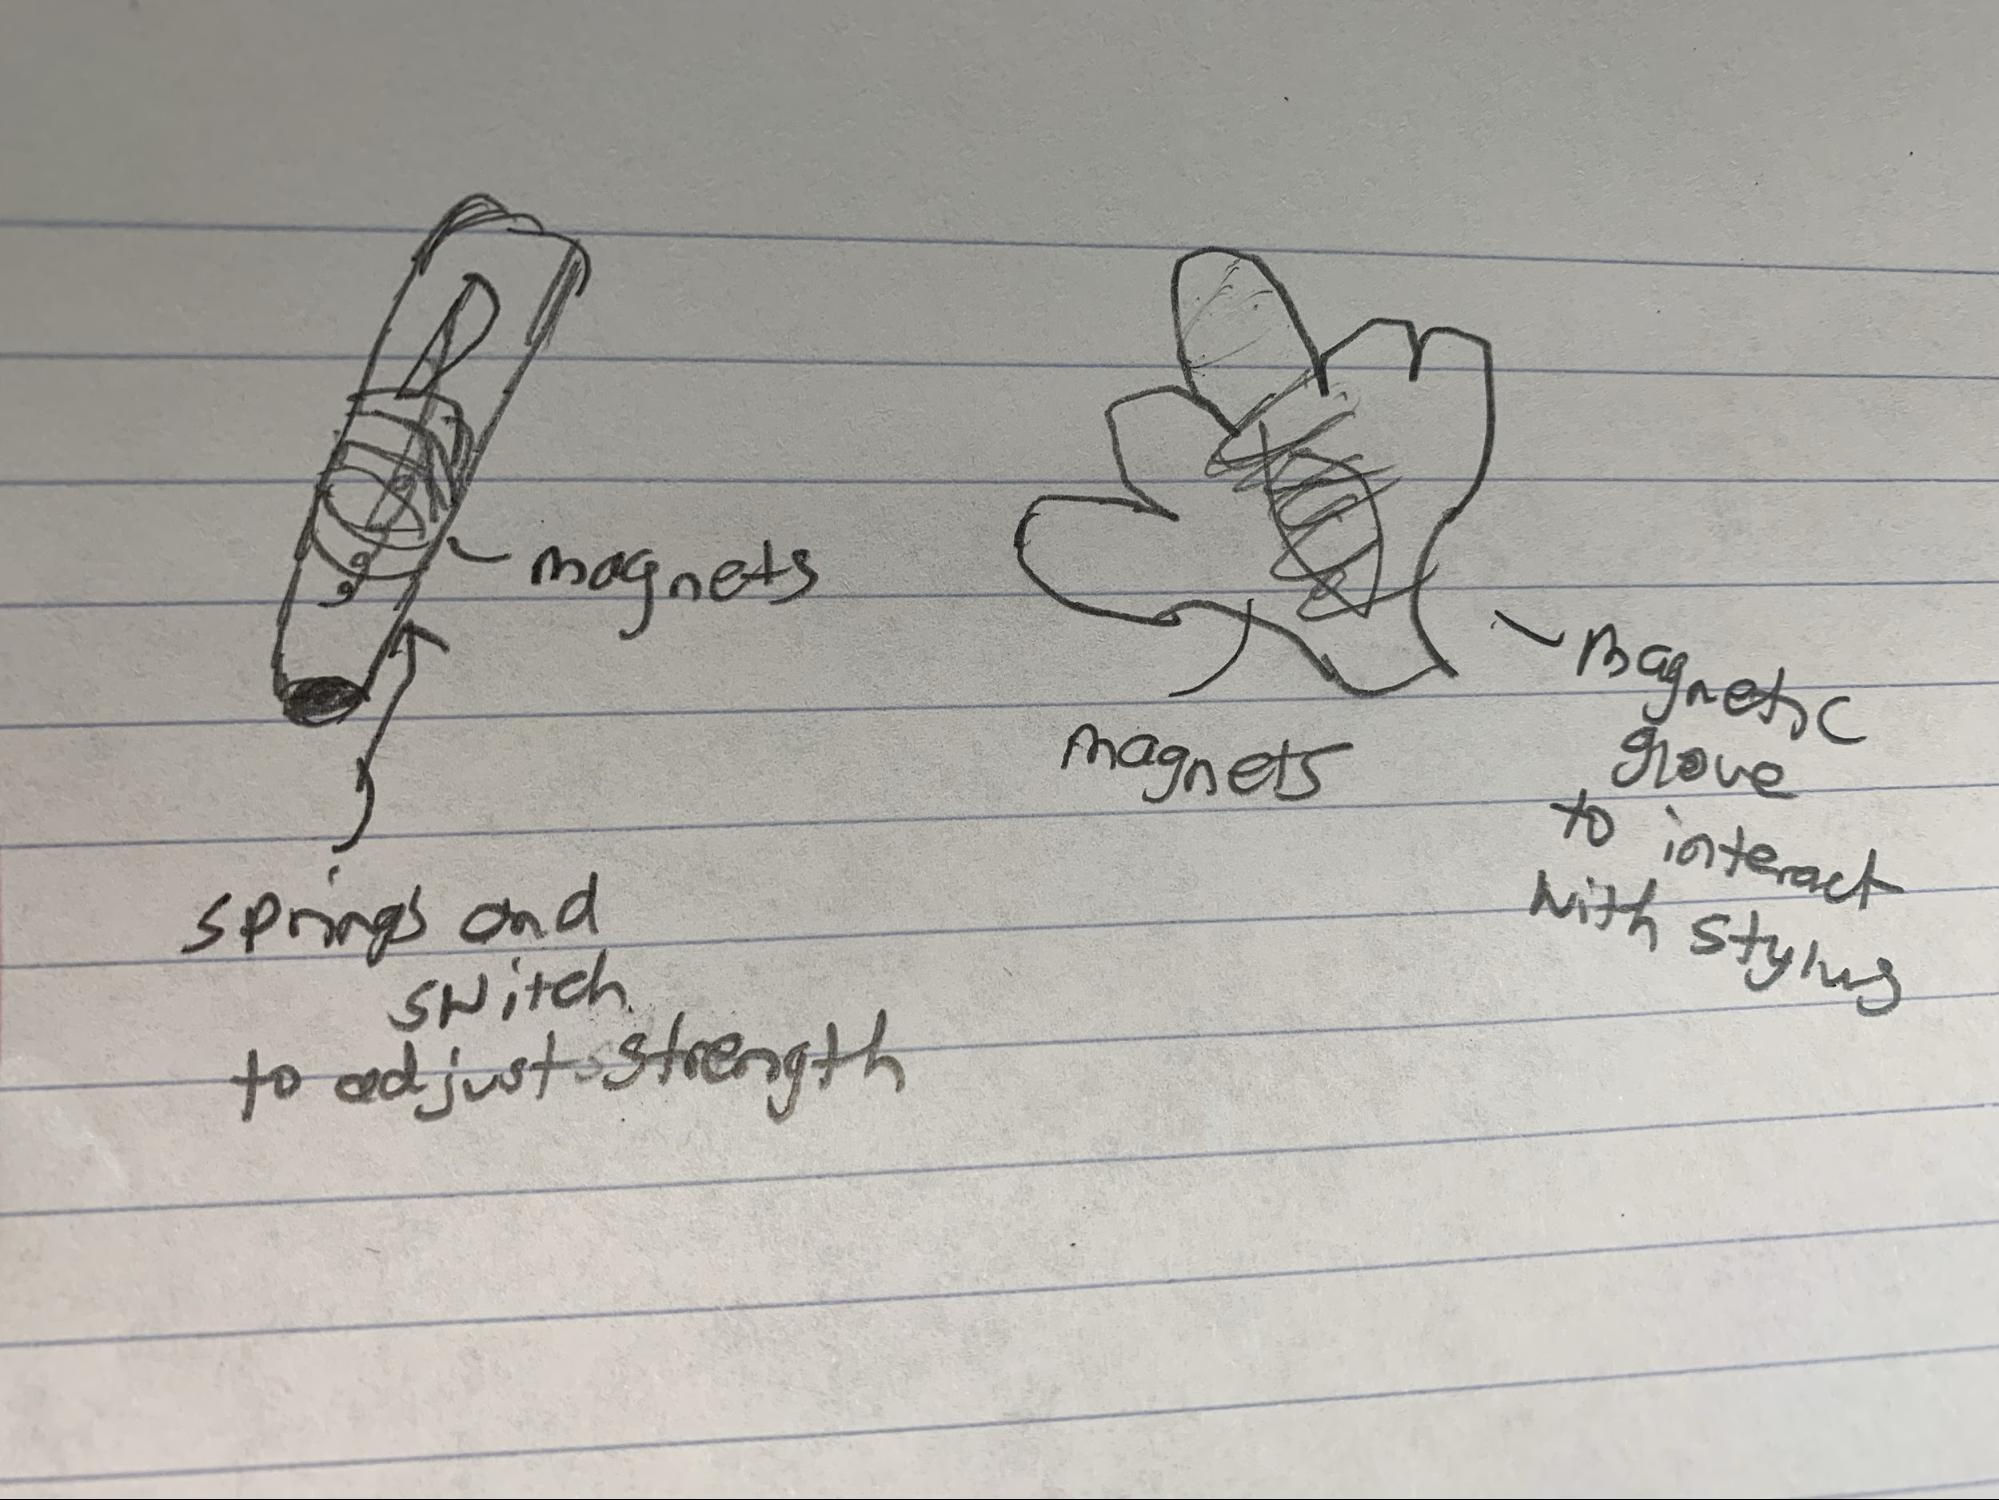 magnets
springs and
switch
to adjust strength
magnets
magnetic
glove
to interact
with stylus